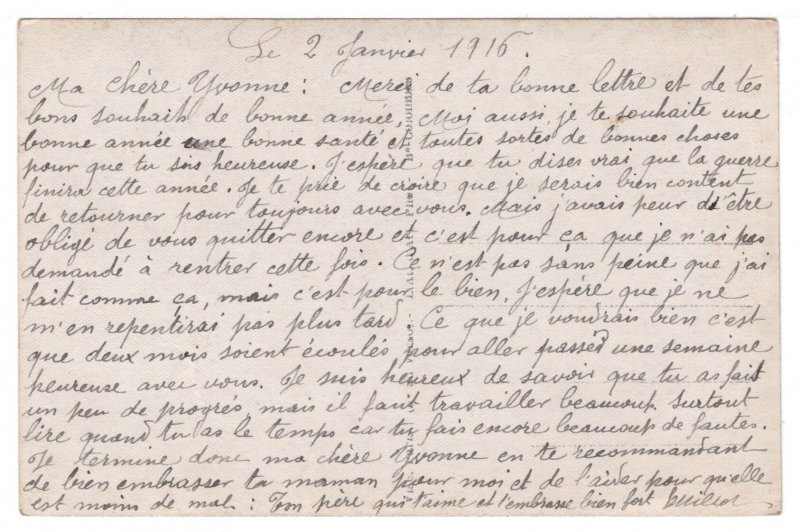 Le 2 Janvier 1916.
Ma chère Yvonne : Merci de ta bonne lettre et de tes
bons souhaits de bonne année, Moi aussi, je te souhaite une
bonne année une bonne santé et toutes sortes de bonnes choses
pour que tu sois heureuse. J'espère que tu dises vrai que la guerre
finira cette année. Je te prie de croire que je serais bien content
de retourner pour toujours avec vous. Mais j'avais peur d'être
obligé de vous quitter encore et c'est pour ça que je n'ai pas
demandé à rentrer cette fois. Ce n'est pas sans peine que j'ai
fait comme ça, mais c'est pour le bien. J'espère que je ne
m'en repentirai pas plus tard. Ce que je voudrais bien c'est
que deux mois soient écoulés pour aller passer une semaine
heureuse avec vous. Je suis heureux de savoir que tu as fait
un peu de progrès, mais il faut travailler beaucoup. Surtout
lire quand tu as le temps car tu fais encore beaucoup de fautes.
Je termine donc ma chère Yvonne en te recommandant
de bien embrasser ta maman pour moi et de l'aider pour qu'elle
est moins de mal : Ton père qui t'aime et t'embrasse bien fort